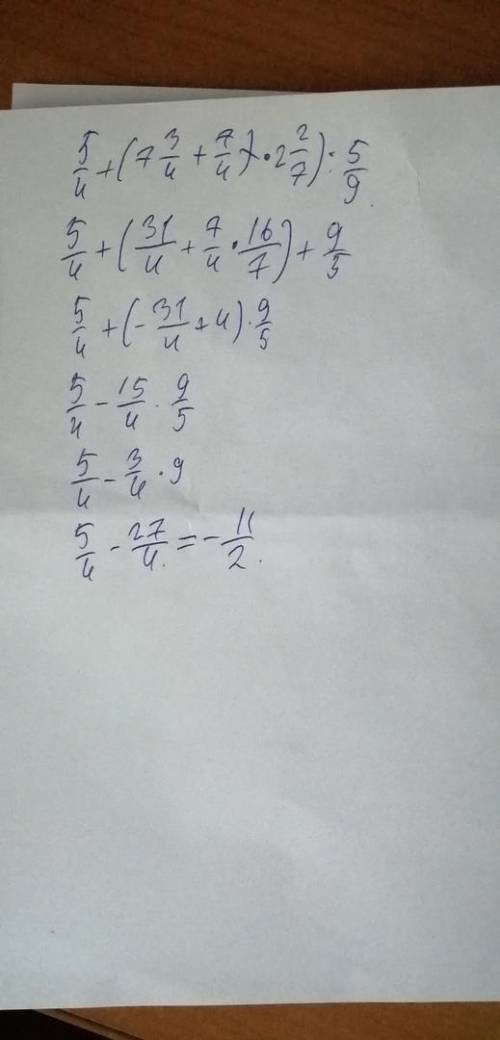 5/4 + (7 3/4 + 7/4) · 2 2/7) : 5/9
5/4 + (31/4 + 7/4 · 16/7) + 9/5
5/4 + (-31/4 + 4) · 9/5
5/4 - 15/4 · 9/5
5/4 - 3/4 · 9
5/4 - 27/4 = - 11/2.